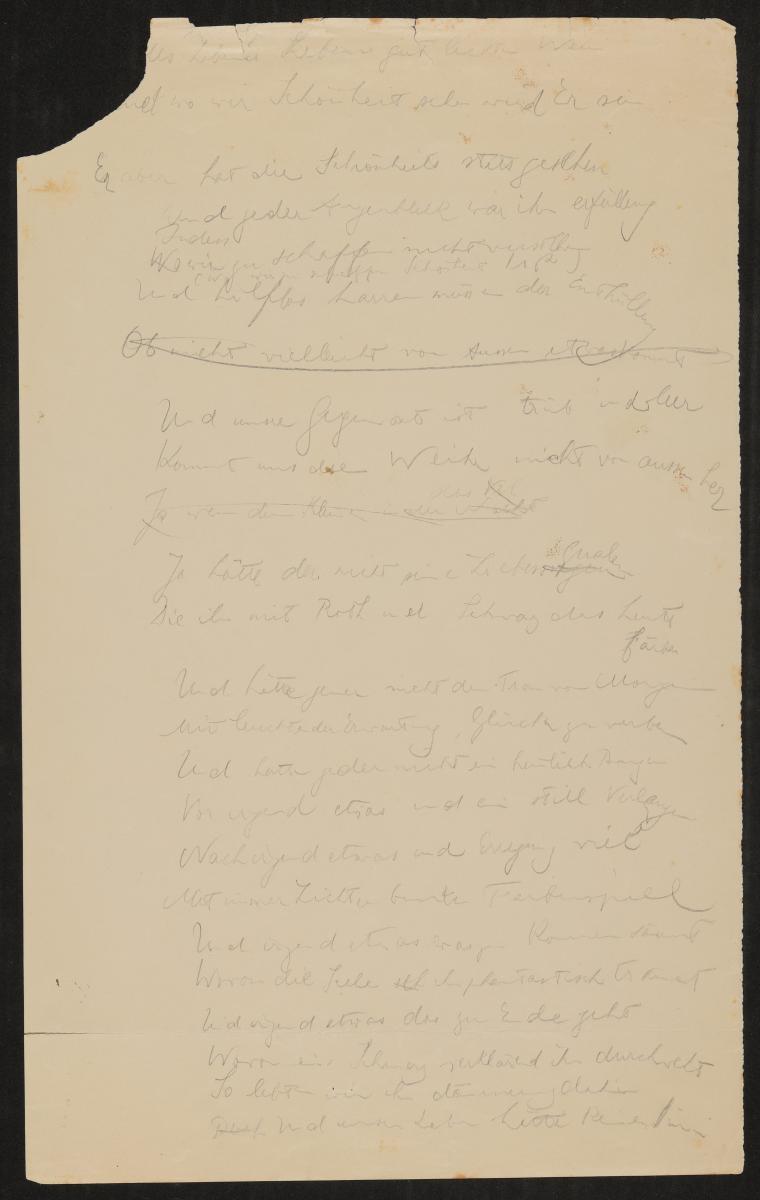 des Lebens gut
und wo wir Schönheit sehen wird Er sein
Er aber hat die Schönheit stets gesehen
Und jeder Augenblick war ihm erfüllung
Indess
wir zu schaffen nicht verstehen
Und hilflos harren müssen der Enthüllung
Ob nicht vielleicht von Aussen etwas kommt
Und unsre Gegenwart ist trüb und leer
Kommt uns die Weihe nicht von aussen her
Ja wenn
Ja hätte der nicht seine Liebes Qualen
Die ihm mit Roth und Schwarz das heute
färben
Und hätte jener nicht den Traum von Morgen
Mit leuchtender Erwartung, Glück zu werben
Und hätte jeder nicht ein heimlich Bangen
Vor irgend etwas und ein still Verlangen
Nach irgend etwas und Erregung viel
Mit innrer Lichter buntem Farbenspiel
Und irgend etwas was zu Kommen säumt
Wovon die Seele ihm phantastisch träumt
Und irgend etwas das zu Ende geht
Wovon ein Schmerz verklärend ihn durchweht
So lebten wir in dämmerung dahin
Und unser Leben hätte keinen Sinn